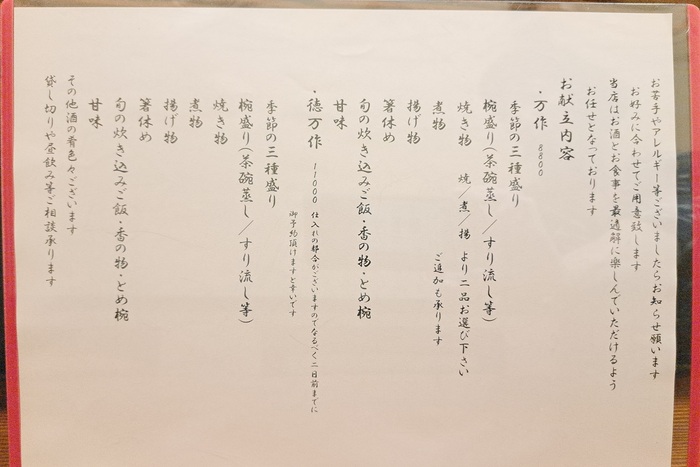 お苦手やアレルギー等ございましたらお知らせ願います
お好みに合わせてご用意致します
当店はお酒とお食事を最適解に楽しんでいただけるよう
お任せとなっております
お献立内容
・万作 8800
季節の三種盛り
椀盛り(茶碗蒸し／すり流し等)
焼き物 焼／煮／揚 より二品お選び下さい
煮物 ご追加も承ります
揚げ物
箸休め
旬の炊き込みご飯・香の物・とめ椀
甘味
・徳万作 11000 仕入れの都合がございますのでなるべく二日前までに
御予約頂けますと幸いです
季節の三種盛り
椀盛り(茶碗蒸し／すり流し等)
焼き物
揚げ物
煮物
箸休め
旬の炊き込みご飯・香の物・とめ椀
甘味
その他酒の肴色々ございます
貸し切りや昼飲み等ご相談承ります